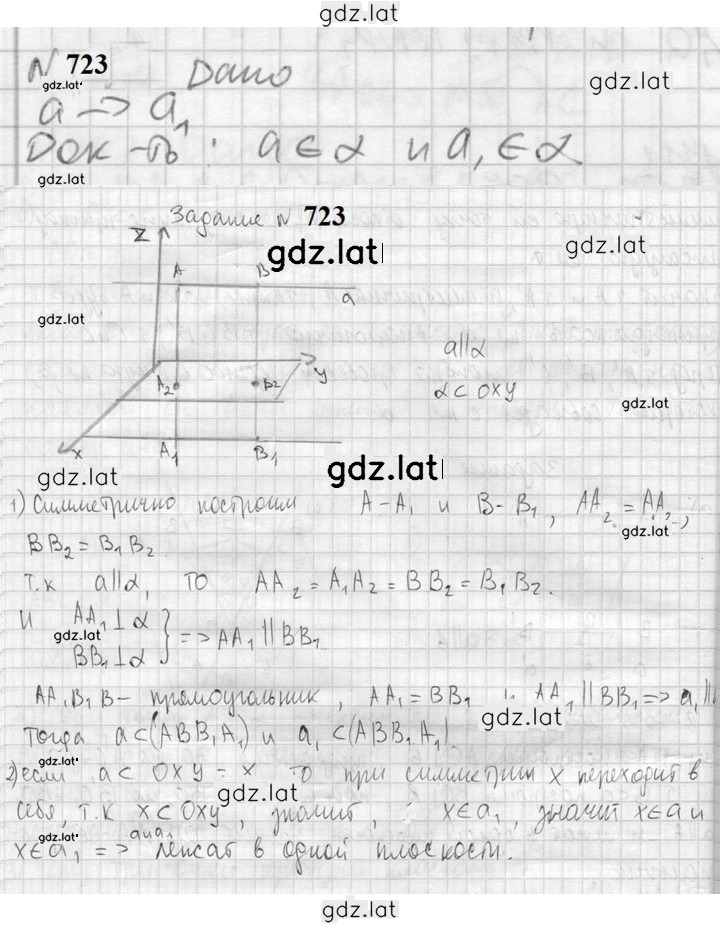 gdz.lat
№ 723
gdz.lat
Дано
gdz.lat
a -> a₁
Док-ть: a ∈ α и a₁ ∈ α
gdz.lat
Задание № 723
z
gdz.lat
gdz.lat
A B
a
gdz.lat
a||α
y
A₂ B₂
α ⊂ OXY
gdz.lat
x
A₁ B₁
gdz.lat
gdz.lat
1) Симметрично построим A-A₁ и B-B₁, AA₂ = AA₂,
gdz.lat
BB₂ = B₁B₂
т.к a||α, то AA₂ = A₁A₂ = BB₂ = B₁B₂.
и AA₁⊥α
gdz.lat
BB₁⊥α } => AA₁ || BB₁
AA₁B₁B - прямоугольник, AA₁ = BB₁ и AA₁ || BB₁ => a₁ ||
gdz.lat
Тогда a⊂(ABB₁A₁) и a₁⊂(ABB₁A₁).
gdz.lat
2) если a⊂ OXY = x то при симметрии x переходит в
gdz.lat
себя, т.к x⊂OXY, значит, x∈a₁, значит x∈a и
gdz.lat
x∈a₁ => a и a₁ лежат в одной плоскости.
gdz.lat